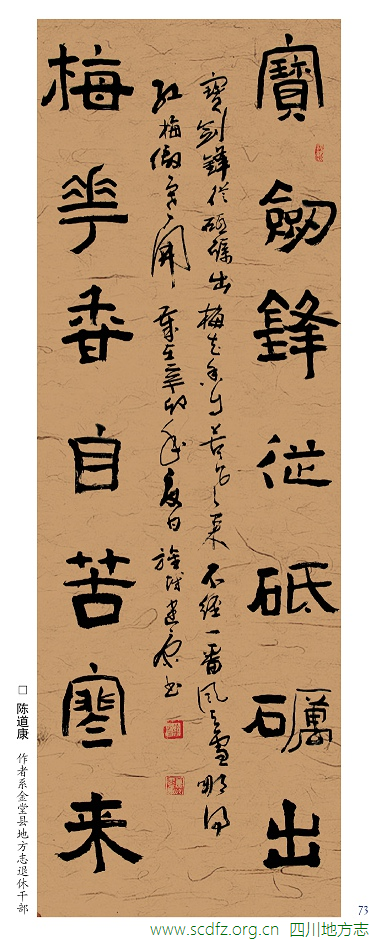 寶劒鋒從砥礪出
寶劍鋒從砥礪出梅花香自苦寒来不經一番風雪那得
紅梅傲雪開 歲在辛卯年夏日 道康书
梅花香自苦寒来
□ 陈道康 作者系金堂县地方志退休干部
73
www.scdfz.org.cn 四川地方志